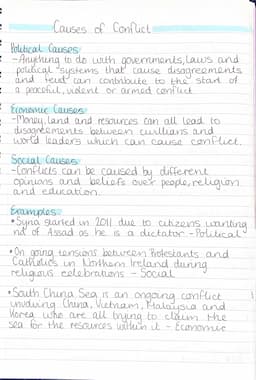 Causes of Conflict
Political Causes
-Anything to do with governments, laws and
political systems that cause disagreements
and feud can contribute to the start of
a peaceful, violent or armed conflict
Economic Causes
-Money, land and resources can all lead to
disagreements between civillians and
world leaders which can cause conflict.
Social Causes
-Conflicts can be caused by different
opinions and beliefs over people, religion
and education.
Examples
•Syria started in 2011 due to citizens wanting
rid of Assad as he is a dictator - Political
•On going tensions between Protestants and
Catholics in Northern Ireland during
religious celebrations - Social
•South China Sea is an ongoing conflict
involving China, Vietnam, Malaysia and
Korea who are all trying to claim the
sea for the resources within it - Economic